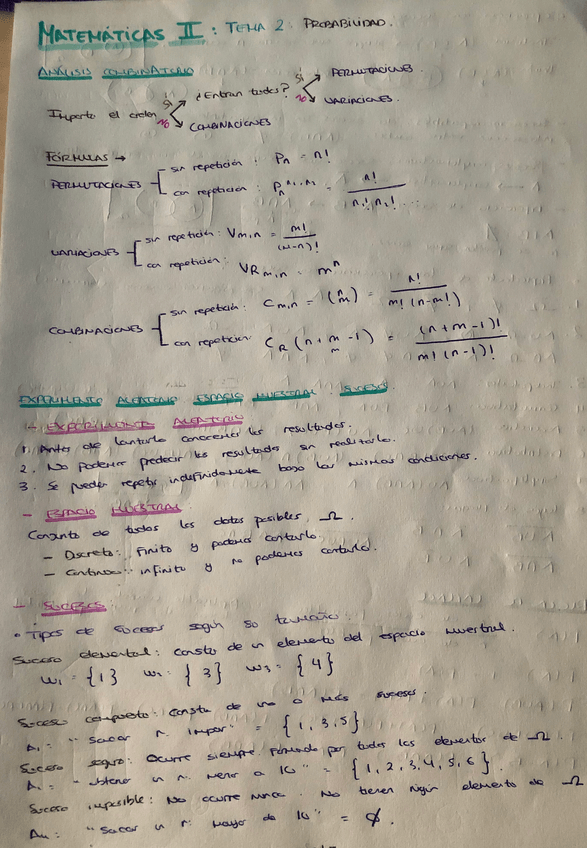 MATEMÁTICAS II: TEMA 2: PROBABILIDAD.
ANÁLISIS COMBINATORIO
Importa el orden
SI ¿Entran todos?
SI PERMUTACIONES
NO VARIACIONES
NO COMBINACIONES
FÓRMULAS →
PERMUTACIONES
sin repetición: Pn = n!
con repetición: = n! / n₁! n₂! ...
VARIACIONES
sin repetición: Vm,n = m! / (m-n)!
con repetición: VRm,n = mⁿ
COMBINACIONES
sin repetición: Cm,n = (n m) = n! / m! (n-m!)
con repetición: CR (n+m-1 m) = (n+m-1)! / m! (n-1)!
EXPERIMENTO ALEATORIO ESPACIO MUESTRAL. SUCESO
- EXPERIMENTO ALEATORIO
1. Antes de lanzarlo conocemos los resultados.
2. No podemos predecir los resultados sin realizarlo.
3. Se pueden repetir indefinidamente bajo las mismas condiciones.
- ESPACIO MUESTRAL
Conjunto de todos los datos posibles Ω
- Discreto: Finito y podemos contarlo.
- Continuo: infinito y no podemos contarlo.
- SUCESOS:
• Tipos de sucesos según su tamaño:
Suceso elemental: consta de un elemento del espacio muestral.
w₁ = {1} w₂ = {3} w₃ = {4}
Suceso compuesto: Consta de uno o más sucesos.
A₁: "Sacar n. impar" = {1, 3, 5}
Suceso seguro: Ocurre siempre. Formado por todos los elementos de Ω
"obtener un n. menor a 10" = {1, 2, 3, 4, 5, 6}.
Suceso imposible: No ocurre nunca. No tienen ningún elemento de Ω
"Sacar un n. mayor de 10" = ∅.